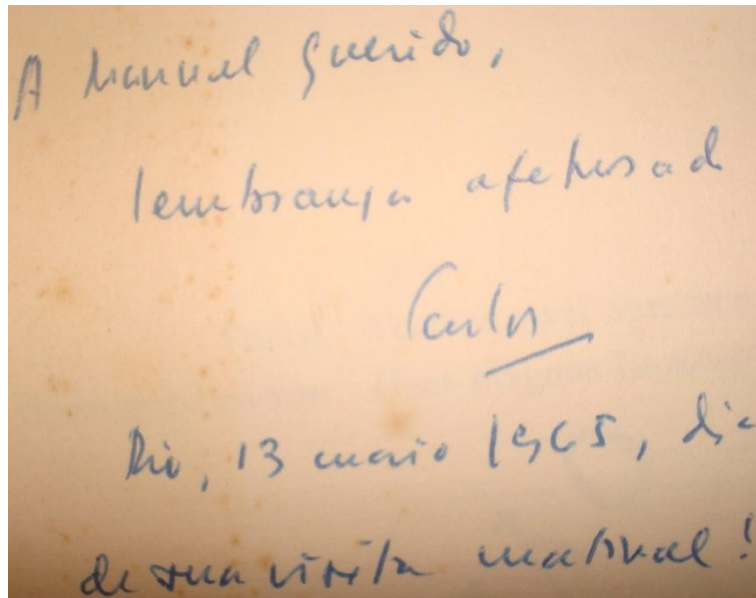 A Manuel querido,
lembrança afetuosa d
Carlos
Rio, 13 maio 1965, dia
de sua visita matinal!